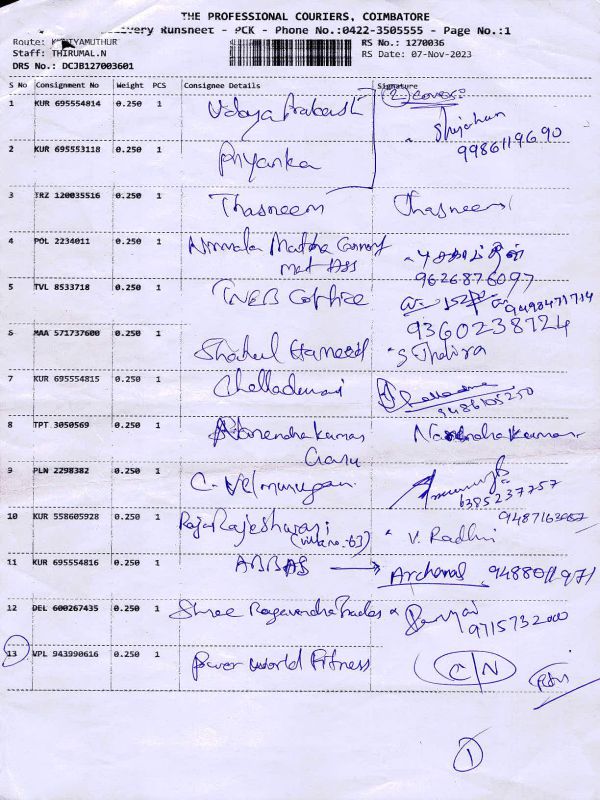 THE PROFESSIONAL COURIERS, COIMBATORE
Delivery Runsheet - PCK - Phone No.:0422-3505555 - Page No.:1
Route: RS No.: 1270036
Staff: THIRUMAL.N RS Date: 07-Nov-2023
DRS No.: DCJB127003601
S No Consignment No Weight PCS Consignee Details Signature
1 KUR 695554814 0.250 1 (2) covers
9986119690
2 KUR 695553118 0.250 1 Priyanka
3 TRZ 120035516 0.250 1 Thasneem Thasneem
4 POL 2234011 0.250 1 Nirmala Matha
9626876097
5 TVL 8533718 0.250 1 TNEB Office
9498471714
9360238724
6 MAA 571737600 0.250 1 Shahul Hameed
7 KUR 695554815 0.250 1 Chelladurai
9486105250
8 TPT 3050569 0.250 1 Narendra kumar Narendra kumar
9 PLN 2298382 0.250 1 C. Velmurugan
6385237757
10 KUR 558605928 0.250 1 Raja Rajeshwari V. Radhi
(villa no. 63)
11 KUR 695554816 0.250 1 ABBAS → Archana 9488011971
12 DEL 600267435 0.250 1 Shree Ragavendra Trades
9715732000
13 VPL 943990616 0.250 1 Power World Fitness C/N
1